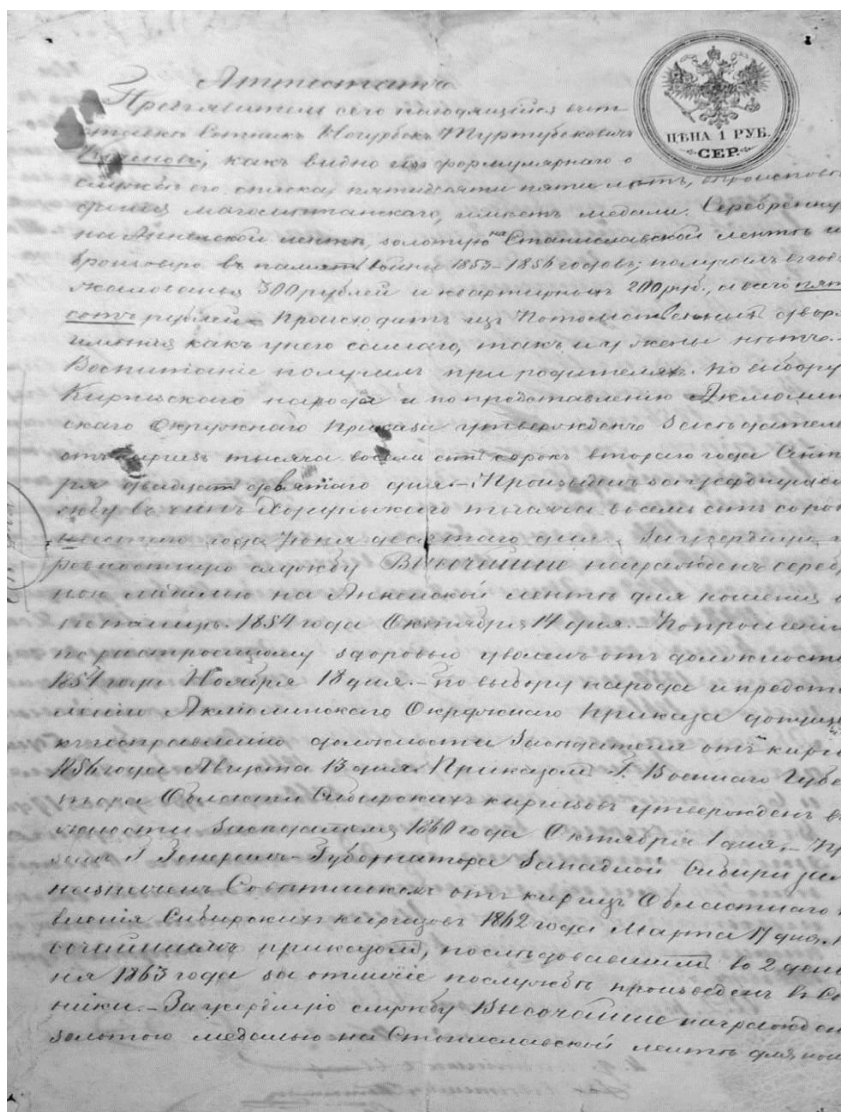 Аттестатъ
Предъявитель сего находящійся въ от
ставкѣ Сотникъ Ногурбекъ
ЦѢНА 1 РУБ.
СЕР.
какъ видно изъ формулярнаго о
службѣ его списка, пятидесяти пяти лѣтъ, вѣроисповѣ
данія магометанскаго, имѣетъ медали: Серебренную
на Аннинской лентѣ, золотую на Станиславской лентѣ и
бронзовую въ память войны 1853–1856 годовъ; получалъ въ годъ
жалованья 300 рублей и квартирныхъ 200 руб., а всего пять
сотъ рублей. Происходитъ изъ потомственныхъ дворянъ
имѣнія какъ у него самаго, такъ и у жены нѣтъ.
Воспитаніе получилъ при родителяхъ. По выбору
Киргизскаго народа и по представленію Акмолин
скаго Окружнаго Приказа утвержденъ Засѣдателемъ
отъ киргизъ тысяча восемь сотъ сорокъ втораго года Сентя
ря двадцать девятаго дня. – Произведенъ за
службу въ чинъ Хорунжаго тысяча восемь сотъ сорокъ
года Іюня десятаго дня. За усердную и
ревностную службу Высочайше награжденъ сереб
ною медалью на Аннинской лентѣ для ношенія
1854 года Октября 14 дня. По прошенію
по разстроенному здоровью уволенъ отъ должности
1854 года Ноября 18 дня. – По выбору народа и предста
вленію Акмолинскаго Окружнаго Приказа допущенъ
къ исправленію должности Засѣдателя отъ киргизъ
1856 года Августа 13 дня. Приказомъ Г. Военнаго Губер
натора Области Сибирскихъ киргизовъ утвержденъ въ
должности Засѣдателя 1860 года Октября 1 дня. – При
Г. Генералъ-Губернатора Западной Сибири
назначенъ Совѣтникомъ отъ киргизъ Областнаго Пра
вленія Сибирскихъ киргизовъ 1862 года Марта 17 дня. Вы
сочайшимъ приказомъ, послѣдовавшимъ во 2 день
1863 года за отличіе по службѣ произведенъ въ Сот
ники. – За усердную службу Высочайше награжденъ
золотою медалью на Станиславской лентѣ для